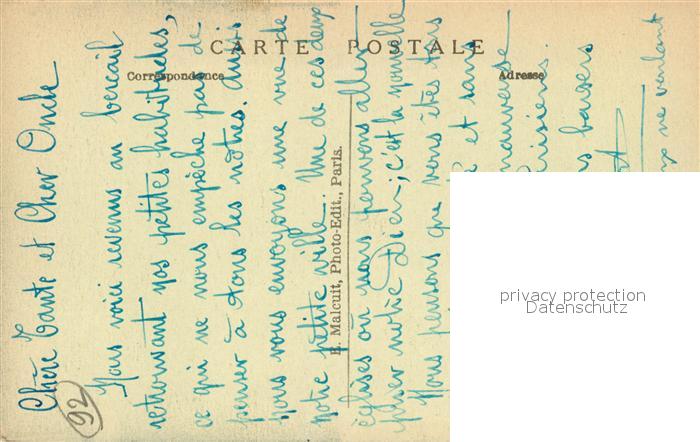 CARTE POSTALE
Correspondance
Adresse
E. Malcuit, Photo-Edit., Paris.
92
Chère Tante et Cher Oncle
Nous voici revenus au bercail
retrouvant nos petites habitudes,
ce qui ne nous empêche pas de
penser à tous les nôtres. Aussi
nous vous envoyons une vue de
notre petite ville. Une de ces deux
églises où nous pouvons aller
prier notre Dieu ; c'est la nouvelle
Nous pensons que vous êtes tous
et sans
mauvaise
baisers
ne voulant
privacy protection
Datenschutz